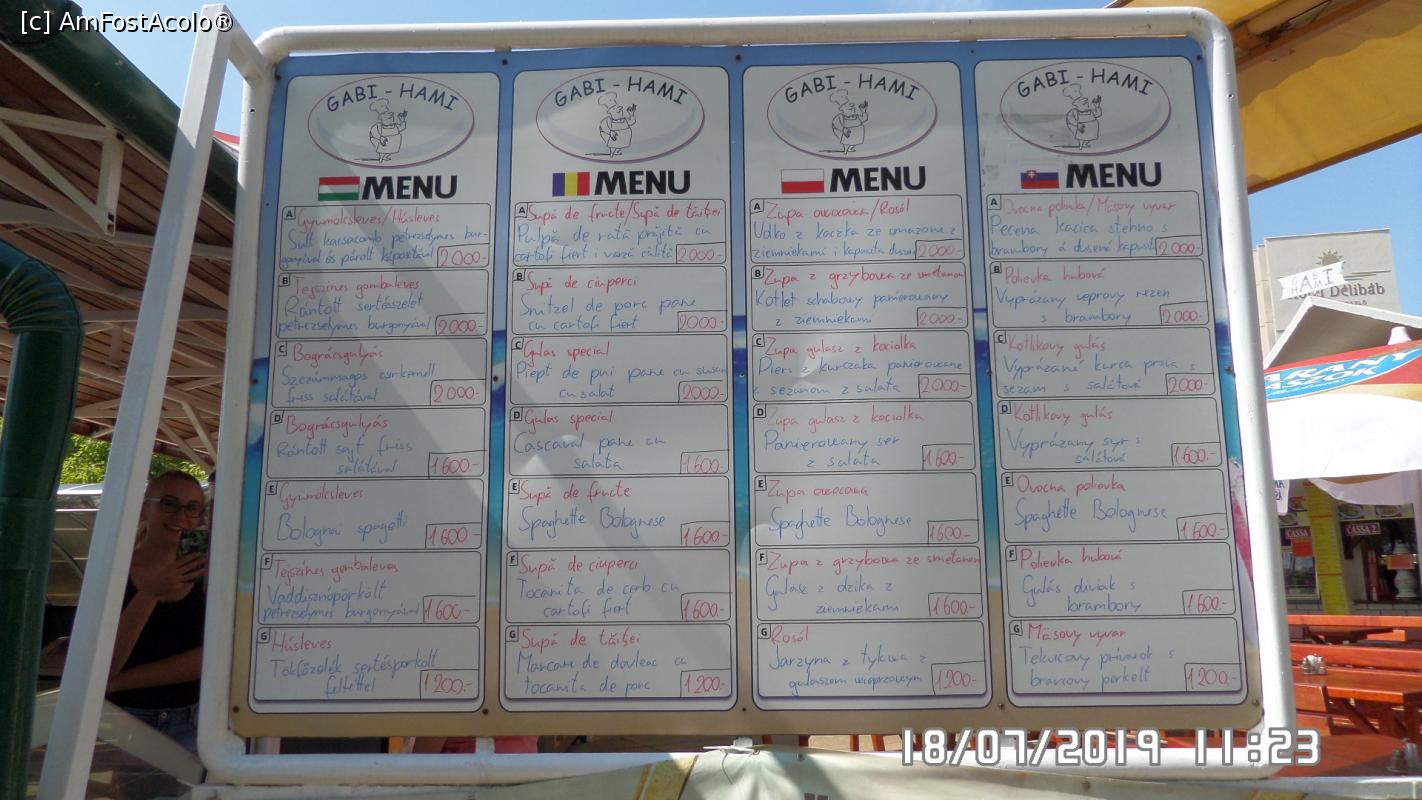 [c] AmFostAcolo®
GABI - HAMI
MENU
A Gyümölcsleves/Húsleves
Sült kacsacomb petrezselymes bur-
gonyával és párolt káposztával 2000.-
B Tejszínes gombaleves
Rántott sertésszelet
petrezselymes burgonyával 2000.-
C Bográcsgulyás
Szezámmagos csirkemell
friss salátával 2000.-
D Bográcsgulyás
Rántott sajt friss
salátával 1600.-
E Gyümölcsleves
Bolognai spagetti 1600.-
F Tejszínes gombaleves
Vaddisznópörkölt
petrezselymes burgonyával 1600.-
G Húsleves
Tökfőzelék sertéspörkölt
feltéttel 1200.-
GABI - HAMI
MENU
A Supă de fructe/Supă de tăiței
Pulpă de rată prăjită cu
cartofi fiert i varză călită 2000.-
B Supă de ciuperci
Snitzel de porc pane
cu cartofi fiert 2000.-
C Gulas special
Piept de pui pane cu susan
cu salat 2000.-
D Gulas special
Cascaval pane cu
salata 1600.-
E Supă de fructe
Spaghette Bolognese 1600.-
F Supă de ciuperci
Tocanita de cerb cu
cartofi fiert 1600.-
G Supă de tăiței
Marcare de dovleac cu
tocanita de porc 1200.-
GABI - HAMI
MENU
A Zupa owocowa/Rosół
Udko z kaczka ze smazone z
ziemniekami i kapusta duson 2000.-
B Zupa z grzybowa ze smetanom
Kotlet schabowy panierowany
z ziemniekami 2000.-
C Zupa gulasz z kociolka
Piers z kurczaka panierowane
z sezamom z salata 2000.-
D Zupa gulasz z kociolka
Panierowany ser
z salata 1600.-
E Zupa owocowa
Spaghette Bolognese 1600.-
F Zupa z grzybowa ze smetanom
Gulasz z dzika z
ziemniekami 1600.-
G Rosół
Jarzyna z tykwa z
gulaszem wieprzowym 1200.-
GABI - HAMI
MENU
A Ovocna polievka/Mäsovy vyvar
Pecena kacica stehno s
brambory a dusené kapusti 2000.-
B Polievka hubová
Vyprázany veprovy rezen
s brambory 2000.-
C Kotlikovy gulás
Vyprázané kurca przia s
sezam s salátová 2000.-
D Kotlikovy gulás
Vyprázany syr s
salátová 1600.-
E Ovocna polievka
Spaghette Bolognese 1600.-
F Polievka hubová
Gulás diviak s
brambory 1600.-
G Mäsovy vyvar
Tekvicovy privarok s
bravcovy porkelt 1200.-
GABI
HAMI
Hotel Délibáb
ARANY
ÁSZOK
CASSA
CASSA 2
18/07/2019 11:23